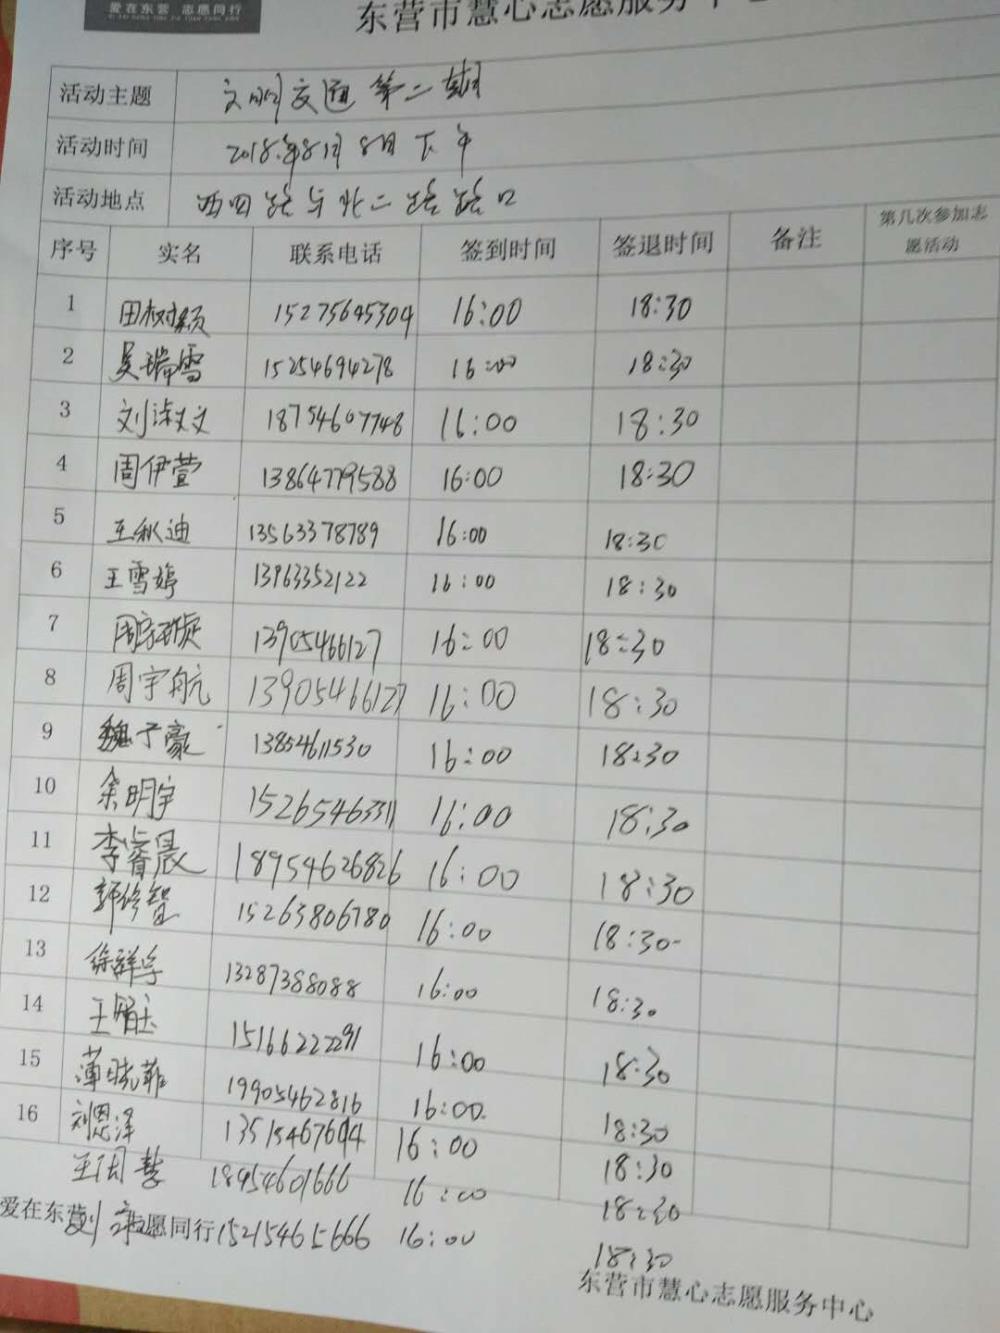 爱在东营 志愿同行
东营市慧心志愿服务中心
活动主题 文明交通第二期
活动时间 2018年8月8日下午
活动地点 西四路与北二路路口
序号 实名 联系电话 签到时间 签退时间 备注 第几次参加志愿活动
1 田树颖 15275645304 16:00 18:30
2 吴瑞雪 15254694278 16:00 18:30
3 刘淑文 18754607748 16:00 18:30
4 周伊萱 13864779588 16:00 18:30
5 王秋迪 13563378789 16:00 18:30
6 王雪婷 13963352122 16:00 18:30
7 13905466127 16:00 18:30
8 周宇航 13905466127 16:00 18:30
9 魏子豪 13854611530 16:00 18:30
10 余明宇 15265463311 16:00 18:30
11 李睿晨 18954626826 16:00 18:30
12 郭修智 15263806780 16:00 18:30
13 徐祥宇 13287388088 16:00 18:30
14 王 15166222291 16:00 18:30
15 薄晓菲 19905462816 16:00 18:30
16 刘恩泽 13515467694 16:00 18:30
王 18954601666 16:00 18:30
爱在东营 刘 志愿同行 15215465666 16:00 18:30
东营市慧心志愿服务中心